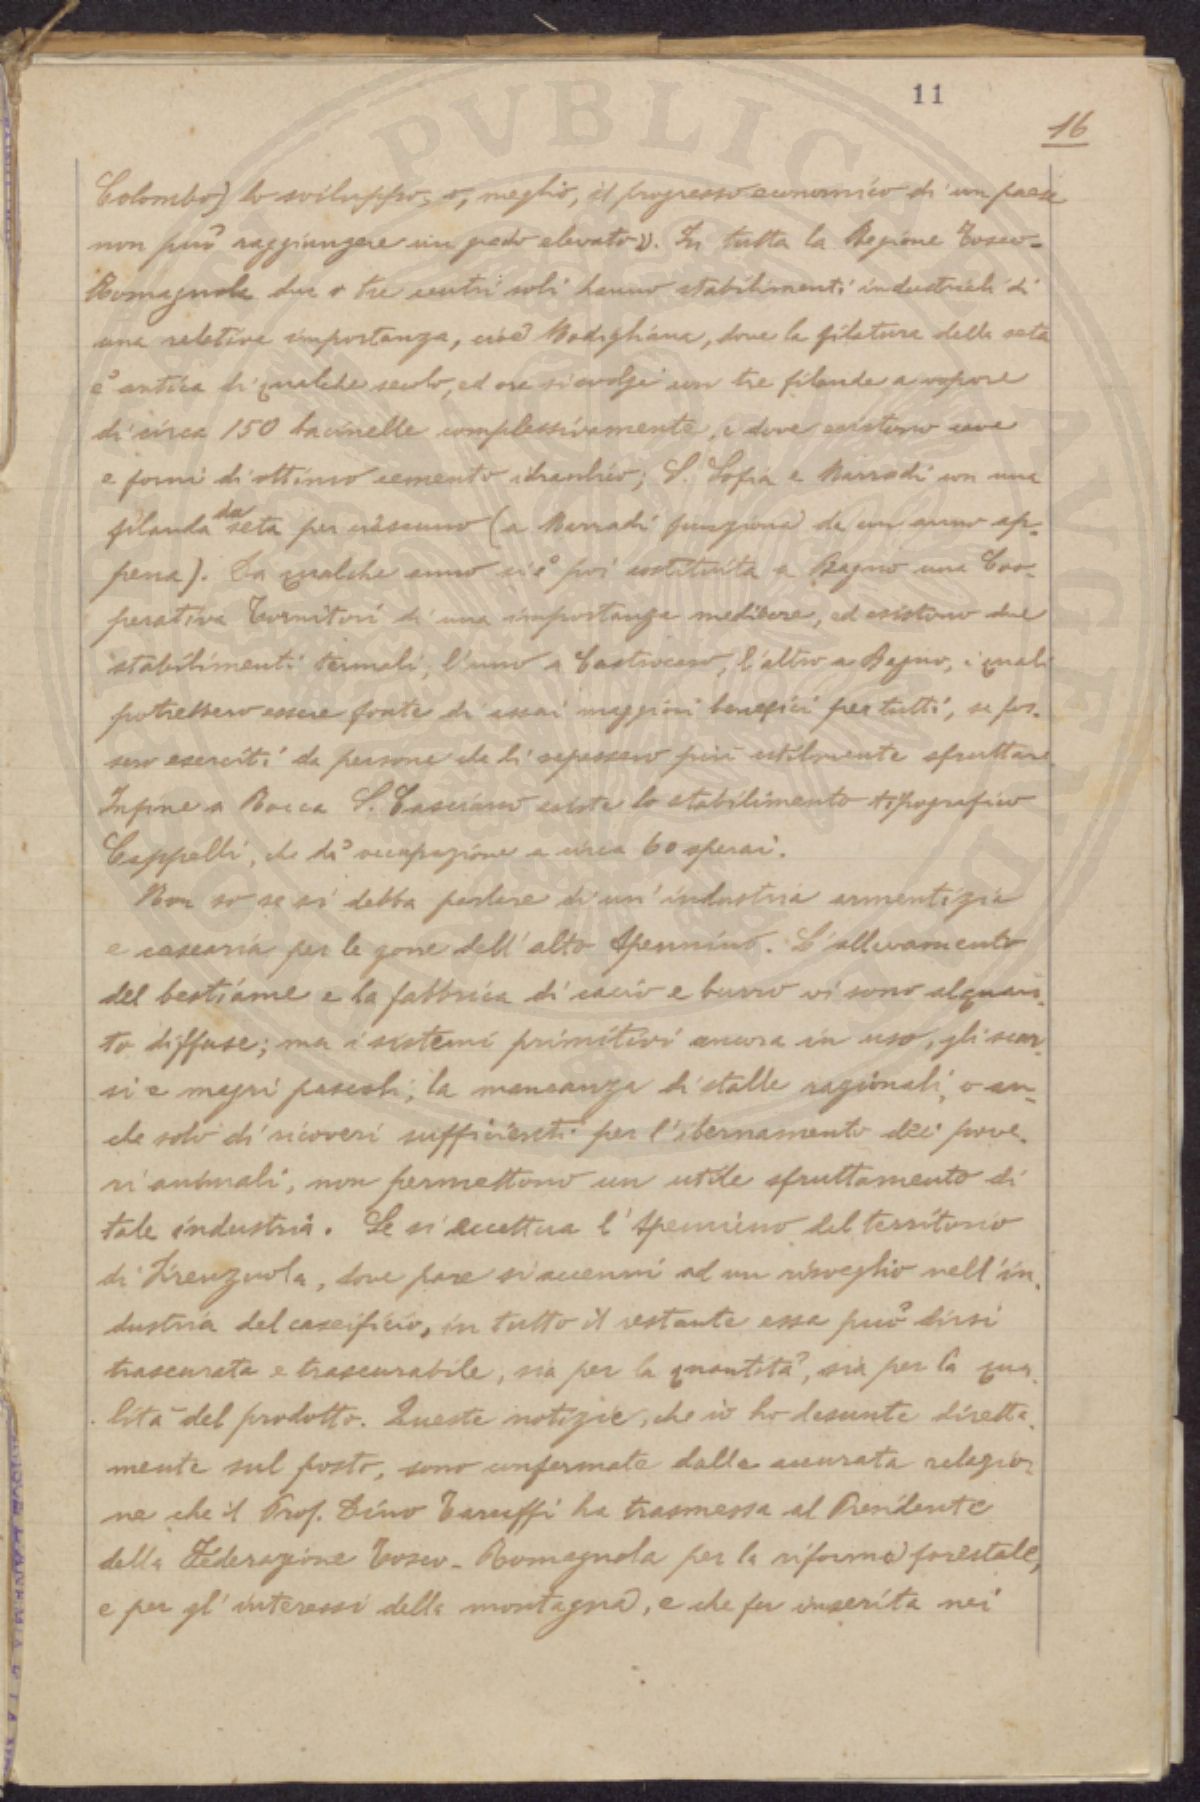 11
16
Colombo) lo sviluppo, o, meglio, il progresso economico di un paese
non può raggiungere un grado elevato». In tutta la Regione Tosco-
Romagnola due o tre centri soli hanno stabilimenti industriali di
una relativa importanza, cioè Modigliana, dove la filatura della seta
è antica di qualche secolo, ed ora si svolge con tre filande a vapore
di circa 150 bacinelle complessivamente, e dove esistono cave
e forni di ottimo cemento idraulico; S. Sofia e Marradi con una
filanda da seta per ciascuno (a Marradi funziona da un anno ap-
pena). Da qualche anno si è poi costituita a Bagno una Coo-
perativa Tornitori di una importanza mediocre, ed esistono due
stabilimenti termali, l'uno a Castrocaro, l'altro a Bagno, i quali
potrebbero essere fonte di assai maggiori benefici per tutti, se fos-
sero eserciti da persone che li sapessero più utilmente sfruttare.
Infine a Rocca S. Casciano esiste lo stabilimento tipografico
Cappelli, che dà occupazione a circa 60 operai.
Non so se si debba parlare di un'industria armentizia
e casearia per le zone dell'alto Apennino. L'allevamento
del bestiame e la fabbrica di cacio e burro vi sono alquan-
to diffuse; ma i sistemi primitivi ancora in uso, gli scar-
si e magri pascoli, la mancanza di stalle razionali, o an-
che solo di ricoveri sufficienti per l'ibernamento dei pove-
ri animali, non permettono un utile sfruttamento di
tale industria. Se si eccettua l'Apennino del territorio
di Firenzuola, dove pare si accenni ad un risveglio nell'in-
dustria del caseificio, in tutto il restante essa può dirsi
trascurata e trascurabile, sia per la quantità, sia per la qua-
lità del prodotto. Queste notizie, che io ho desunte diretta-
mente sul posto, sono confermate dalla accurata relazio-
ne che il Prof. Dino Taruffi ha trasmessa al Presidente
della Federazione Tosco-Romagnola per la riforma forestale,
e per gl'interessi della montagna, e che fu inserita nei